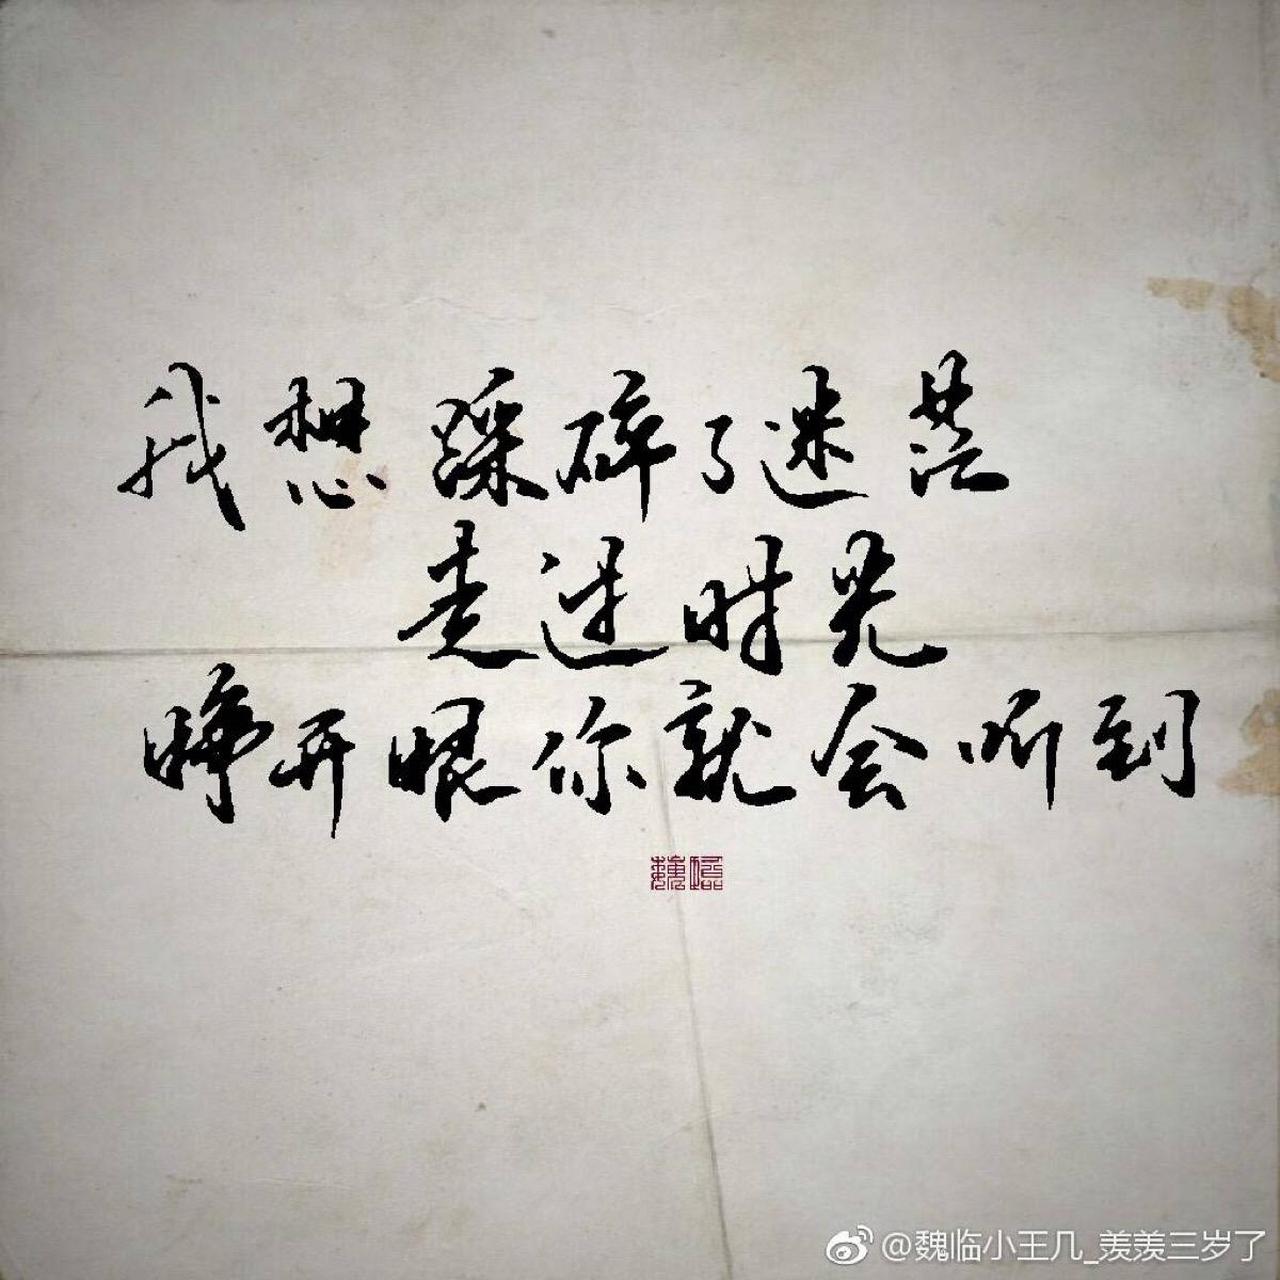 我想踩碎了迷茫
走进时光
睁开眼你就会听到
@魏临小王几_羡羡三岁了